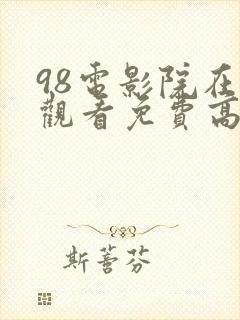 98電影院在
觀看免費高
斯蕾芬